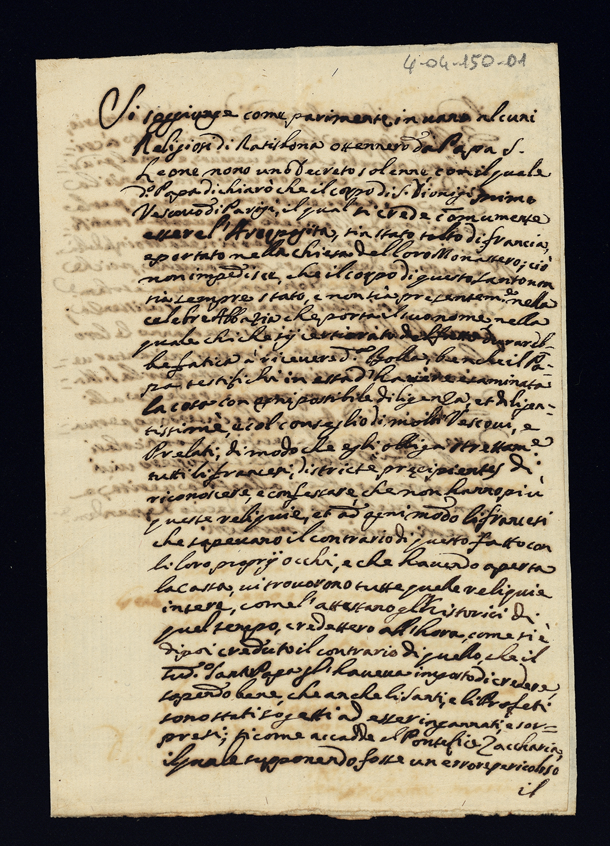 4-04-150-01
Si soggiunge come parimente in vano alcuni
Religiosi di Ratisbona ottennero da Papa S.
Leone nono uno Decreto solenne con il quale
d.º Papa dichiarò che il corpo di S. Dionigi primo
Vescovo di Parigi, il qual si crede comunemente
essere l'Areopagita, sia stato tolto di francia,
e portato nella chiesa del loro Monastero; ciò
non impedisce, che il corpo di questo santo non
sia sempre stato, e non sia presentem.te nella
celebre Abbazia che porta il suo nome nella
quale chi che sij
be fatica à ricevere d.ª Bolla, benche il Pa=
pa testifichi in essa d'havere esaminata
la cosa con ogni possibile diligenza, et diligen=
tissime e col conseglio di molti Vescovi, e
Prelati, di modo che egli obliga strettam.e
tutti li francesi, districte præcipientes di
riconoscere, e confessare, che non hanno più
queste reliquie, et ad ogni modo li francesi
che sapevano il contrario di questo fatto con
li loro proprij occhi, e che havendo aperta
la Cassa, vi trovorono tutte quelle reliquie
intere, come l'attestano gli historici di
quel tempo, credettero all'hora, come si è
dipoi creduto il contrario di quello, che il
sud.º Santo Papa gli haveva imposto di credere,
sapendo bene, che anche li Santi, e li Profeti
sono stati sogetti ad esser ingannati, e sor=
presi; si come accadde al Pontefice Zaccharia,
il quale supponendo fosse un errore pericoloso
il